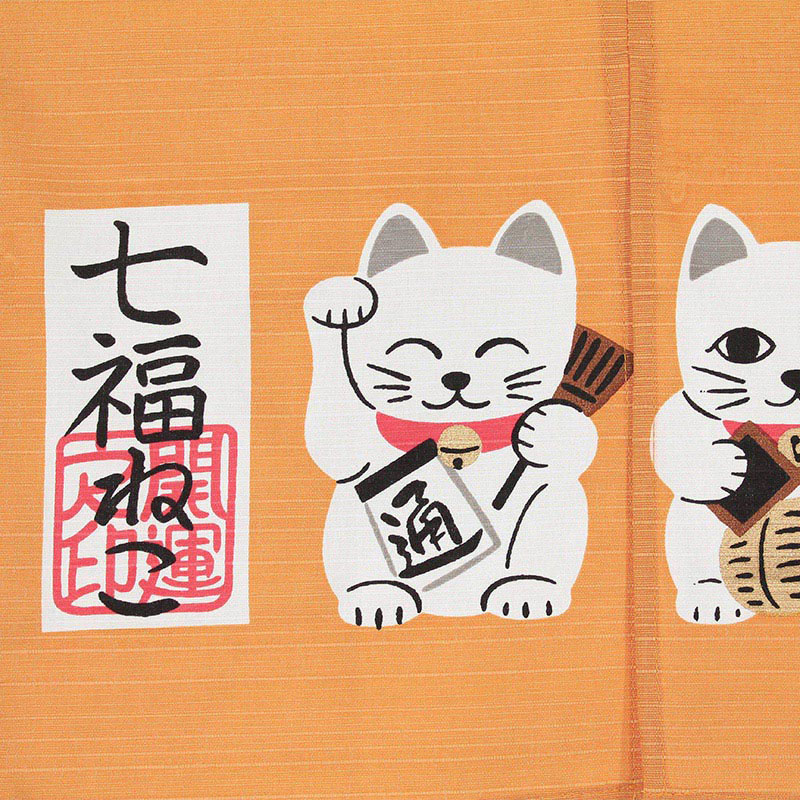 七福ねこ
開運
印
通